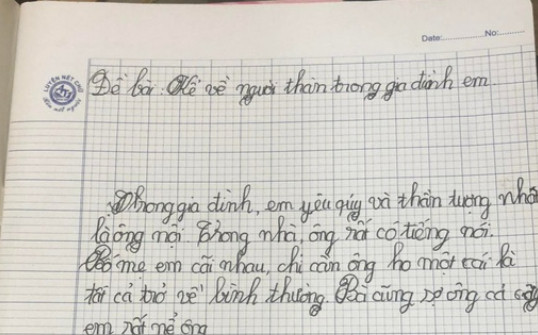 Date: No:
LUYỆN NÉT CHỮ
Đề bài: Kể về người thân trong gia đình em
Trong gia đình, em yêu quý và thần tượng nhấ
là ông nội. Trong nhà, ông rất có tiếng nói.
Bố mẹ em cãi nhau, chỉ cần ông ho một cái là
tất cả trở về bình thường. Bà cũng sợ ông cơ
em rất nể ông